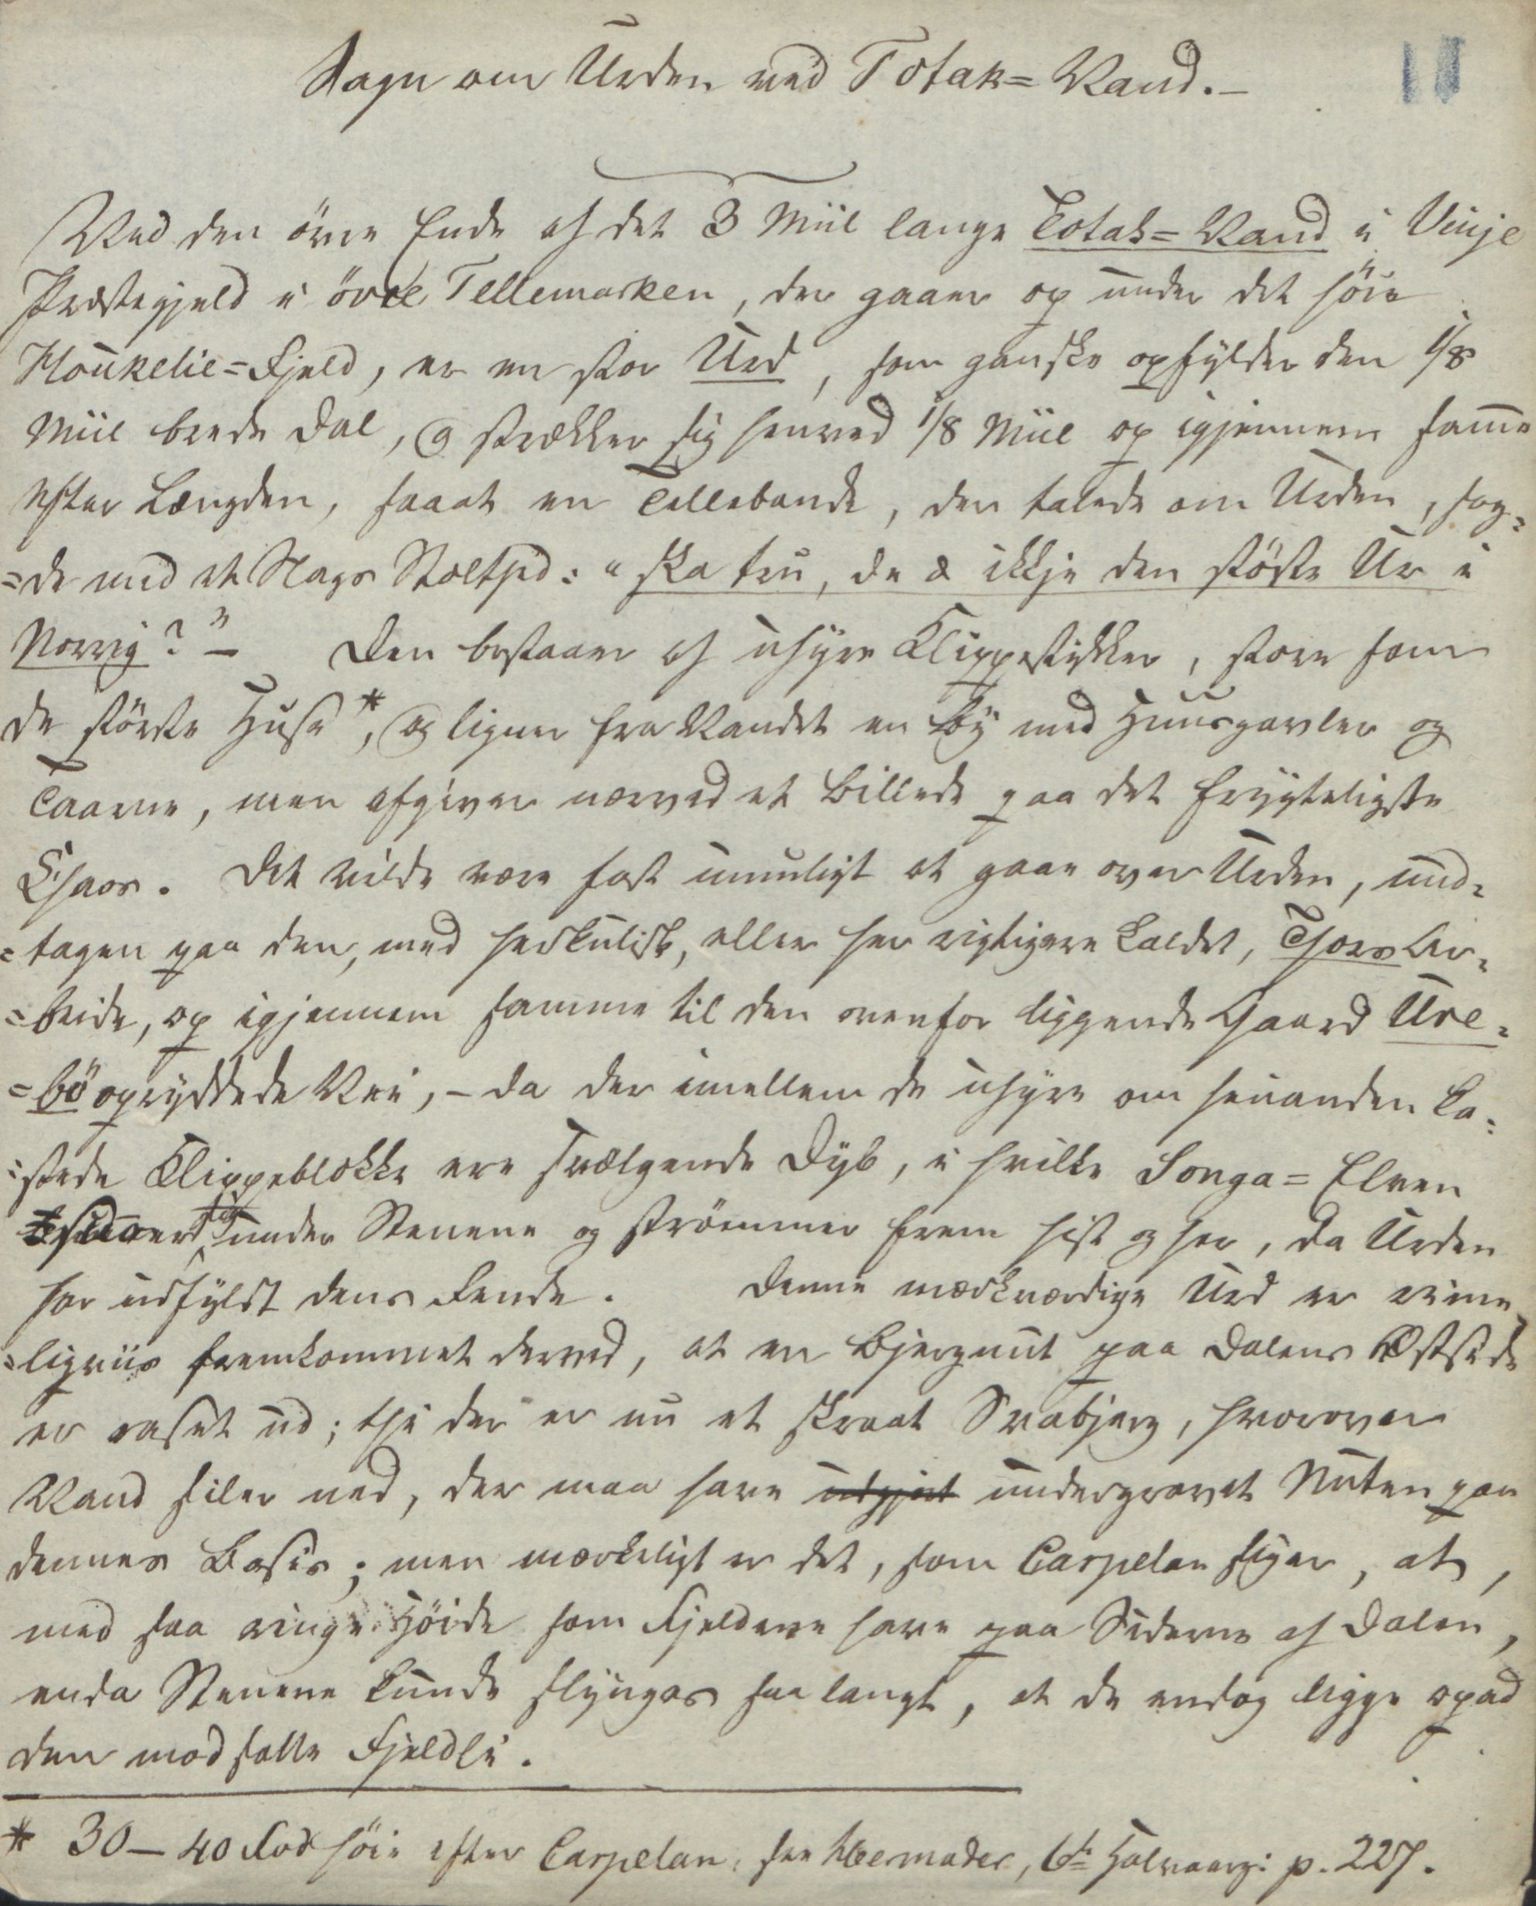 Sagn om Urden ved Totak= Vand.–
11
Ved den övre Ende af det 3 Miil lange Totak= Vand i Vinje
Præstegjeld i övre Tellemarken, der gaaer op under det höie
Houkelie=Fjeld, er en stor Urd, som ganske opfylder den 1/8
Miil brede Dal, og strækker sig henved 1/8 Miil op igjennem samme
efter Længden, saaat en Tellebonde, der talede om Urden, sag=
=de med et Slags Stolthed: "ska tru, de æ ikkje den störste Ur i
Norrig?" – Den bestaaer af uhyre Klippestykker, store som
de störste Huse*, og ligner fra Vandet en By med Huusgavler og
Taarne, men afgiver nærved et Billede paa det frygteligste
Chaos. Det vilde være fast umuligt at gaae over Urden, und=
=tagen paa den, med herkulisk, eller her rigtigere kaldet, Thors Ar=
=beide, op igjennem samme til den ovenfor liggende Gaard Ure=
=bö opryddede Vei, – da der imellem de uhyre om hinanden ka=
=stede Klippeblokke ere svælgende Dyb, i hvilke Songa= Elven
under Stenene og strömmer frem hist og her, da Urden
har udfyldt dens Rende. Denne mærkværdige Urd er rime=
=ligviis fremkommet derved, at en Bjergnut paa Dalens Østside
er raset ud; thi der er nu et skraat Svabjerg, hvorover
Vand siler ned, der maa have undergravet Nuten paa
dennes Basis; men mærkeligt er det, som Carpelan siger, at,
med saa ringe Höide som Fjeldene have paa Siderne af Dalen,
enda Stenene kunde slynges saa langt, at de endog ligge opad
den modsatte Fjeldli.
* 30 – 40 Fod höie efter Carpelan, see Hermoder, 6te Halvaarg: p. 227.